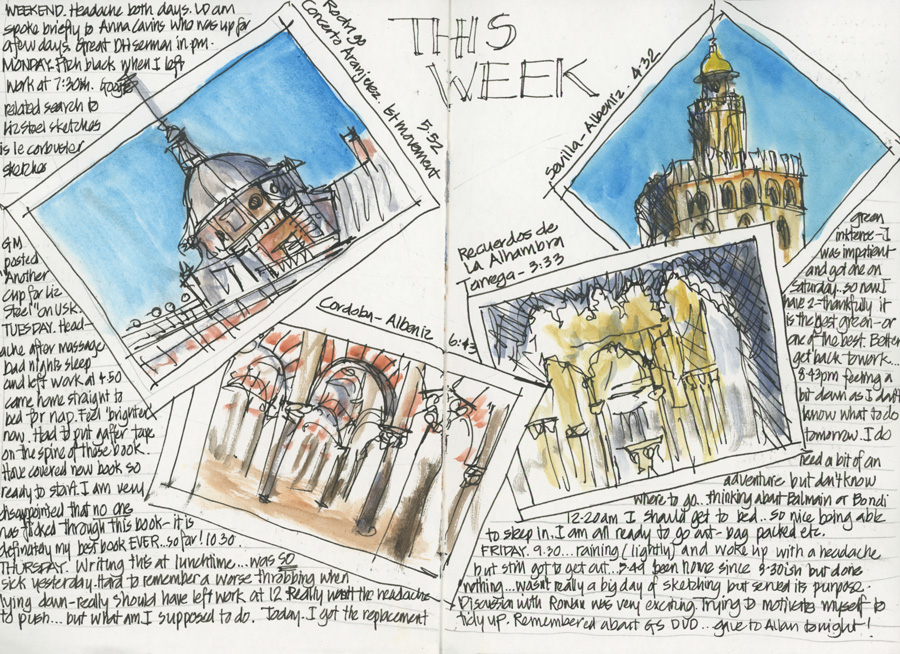 THIS
WEEK
WEEKEND. Headache both days. LD am
spoke briefly to Anna who was up for
a few days. Great DH sermon in pm.
MONDAY. Pitch black when I left
work at 7:30pm. Google
related search to
Liz Steel sketches
is le corbusier
sketches
Rodrigo
Concerto Aranjuez. 1st movement
5:52
GM
posted
"Another
Cup for Liz
Steel" on USk.
TUESDAY. Head-
ache after massage
bad nights sleep
and left work at 4.50
came home straight to
bed for nap. Feel 'brighter'
now. Had to put gaffer tape
on the spine of these book.
Have covered new book so
ready to start. I am very
disappointed that no one
has flicked through this book - it is
definately my best book EVER..so far! 10.30
THURSDAY. Writing this at lunchtime...was so
sick yesterday. Hard to remember a worse throbbing when
lying down - really should have left work at 12. Really want the headache
to push... but what am I supposed to do. Today. I got the replacement
Cordoba - Albeniz
6:43
Sevilla - Albeniz. 4:32
Recuerdos de
La Alhambra
Tarrega - 3:33
green
intense - I
was impatient
and got one on
Saturday.. so now I
have 2 - thankfully it
is the best green - or
one of the best. Better
get back to work...
8:43pm feeling a
bit down as I don't
know what to do
tomorrow. I do
need a bit of an
adventure but don't know
where to go.. thinking about Balmain or Bondi
12-20am I should get to bed...so nice being able
to sleep in. I am all ready to go out - bag packed etc.
FRIDAY. 9.30... raining (lightly) and woke up with a headache
but still got to get out... 5.49 been home since 3.30ish but done
nothing... wasn't really a big day of sketching but served its purpose.
Discussion with Ronan was very exciting. Trying to motivate myself to
tidy up. Remembered about GS DVD... gave to Allan tonight!